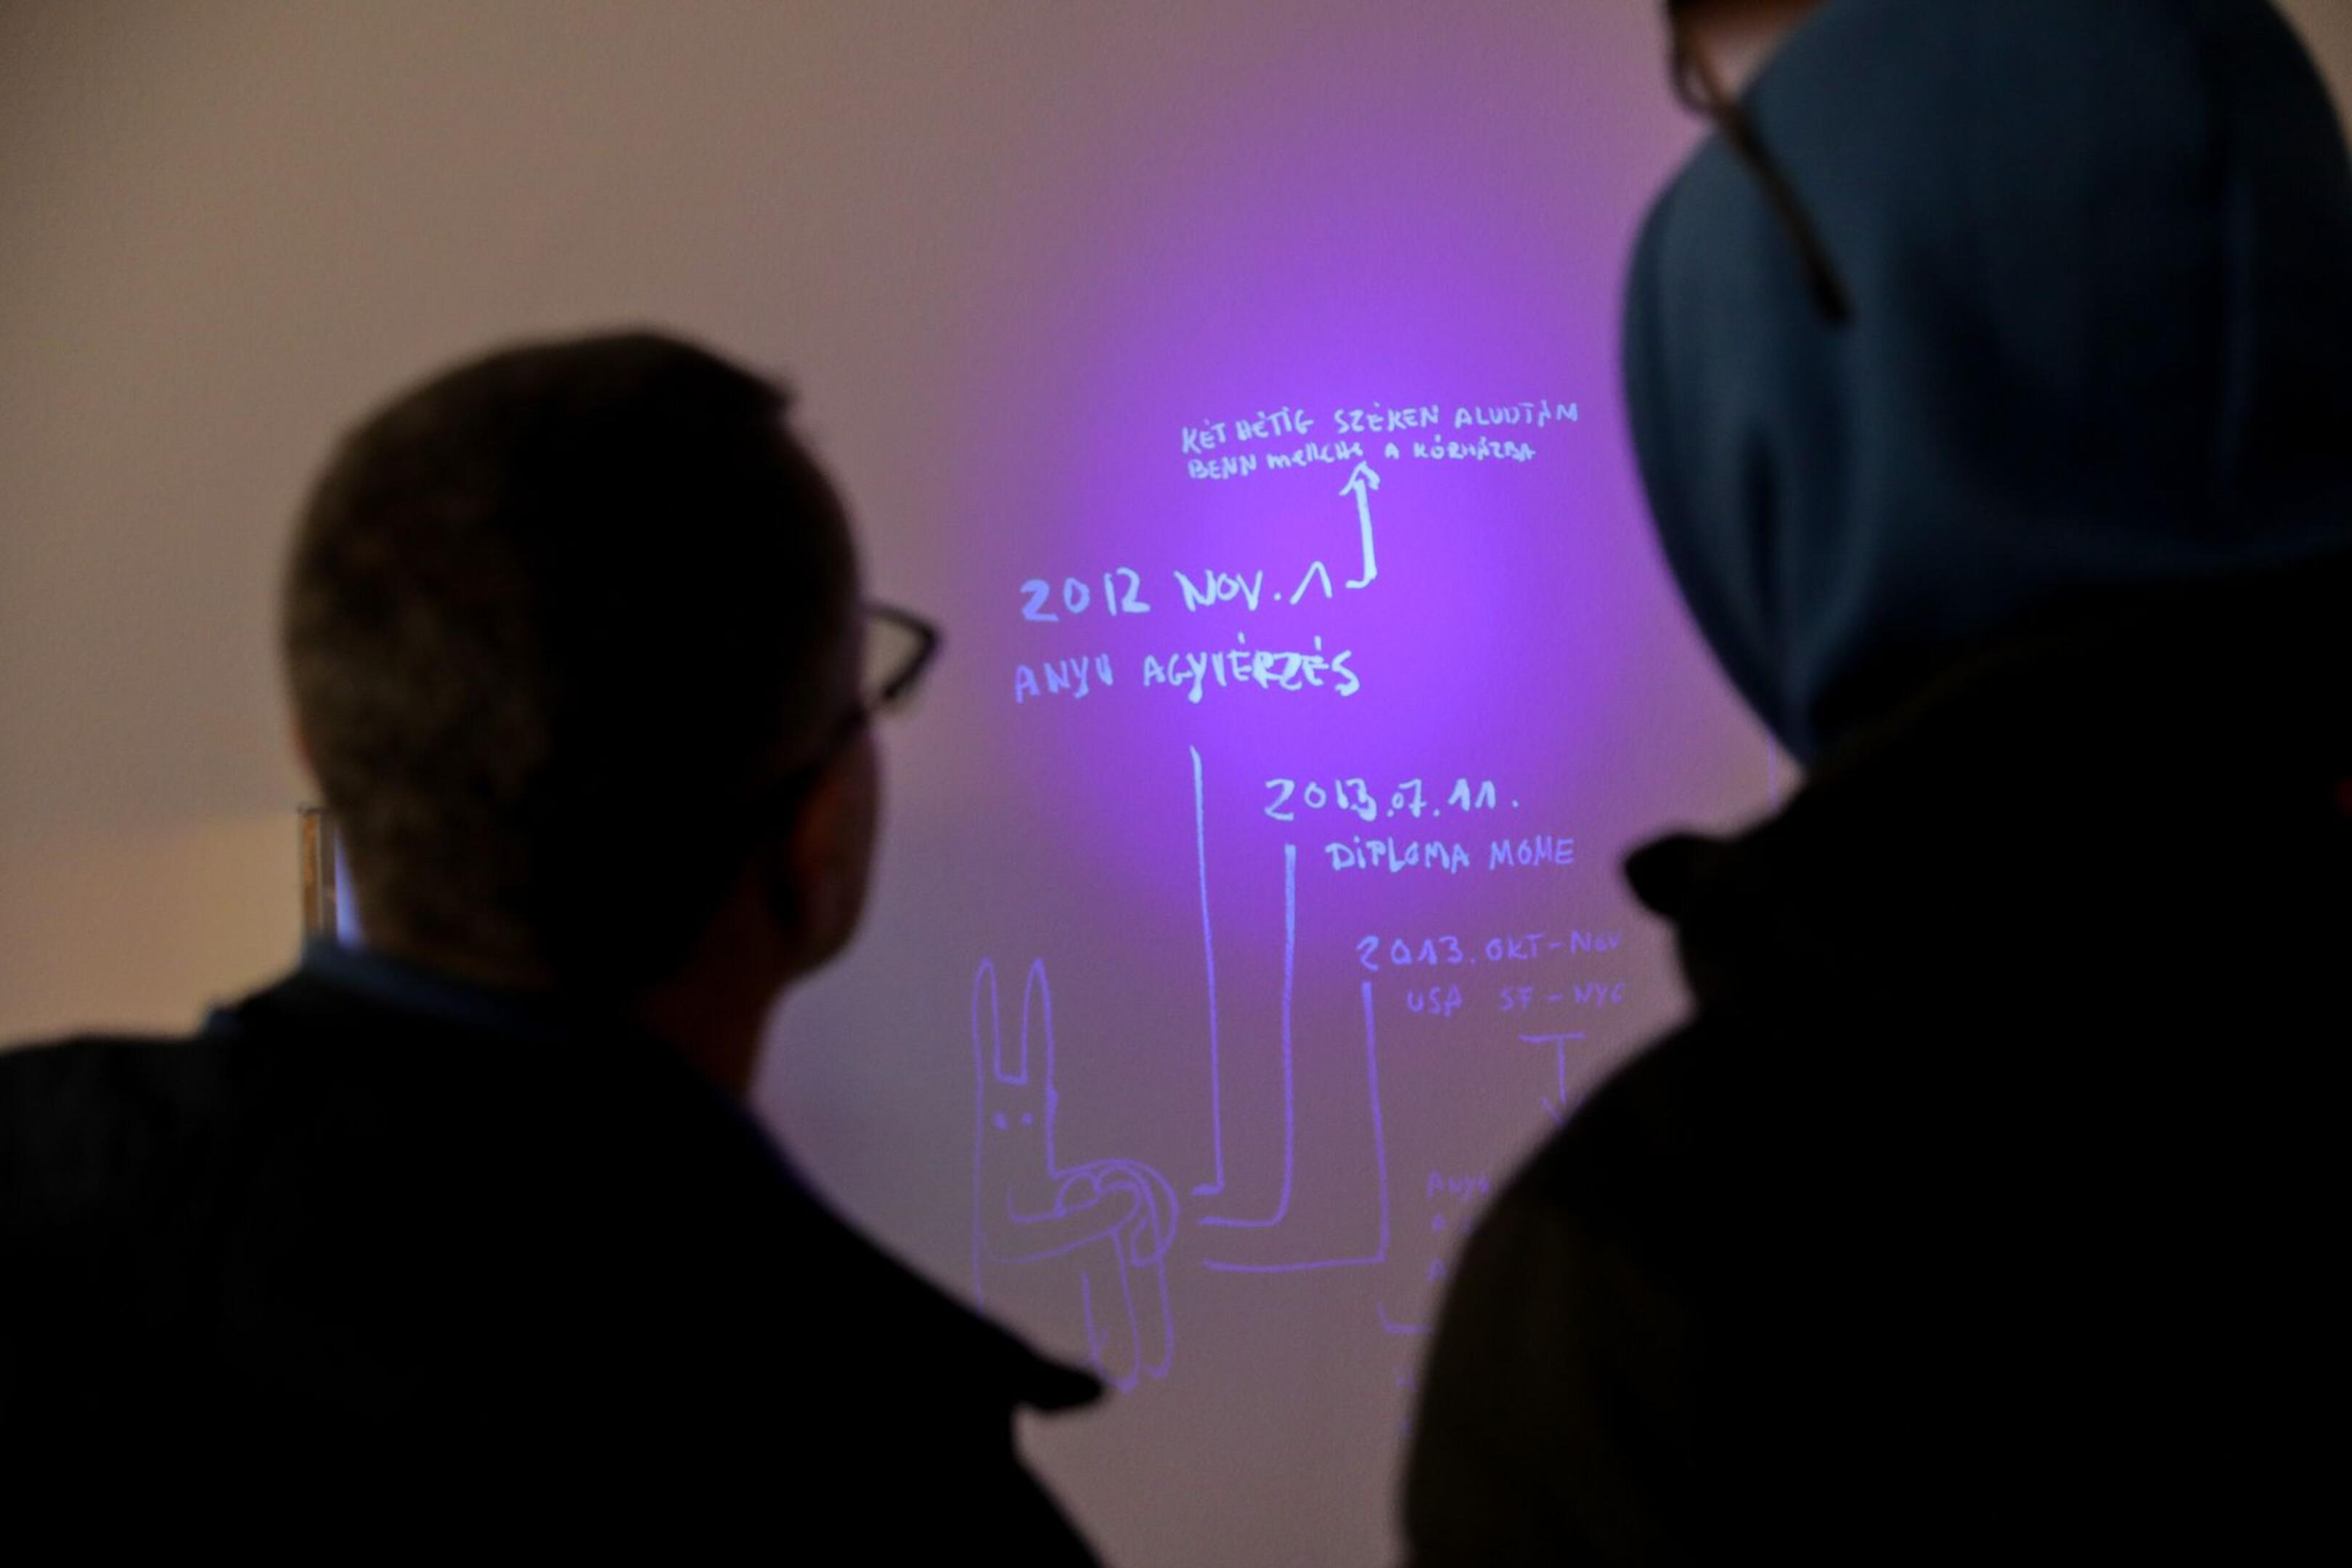 KÉT HÉTIG SZÉKEN ALUDTAM
BENN mellette A KÓRHÁZBA
2012 NOV. 1
ANYU AGYVÉRZÉS
2013.07.11.
DiPLOMA MOME
2013. OKT-NOV
USA SF-NYC